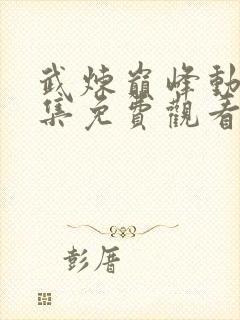 武煉巔峰動
集免費觀看
彭厝